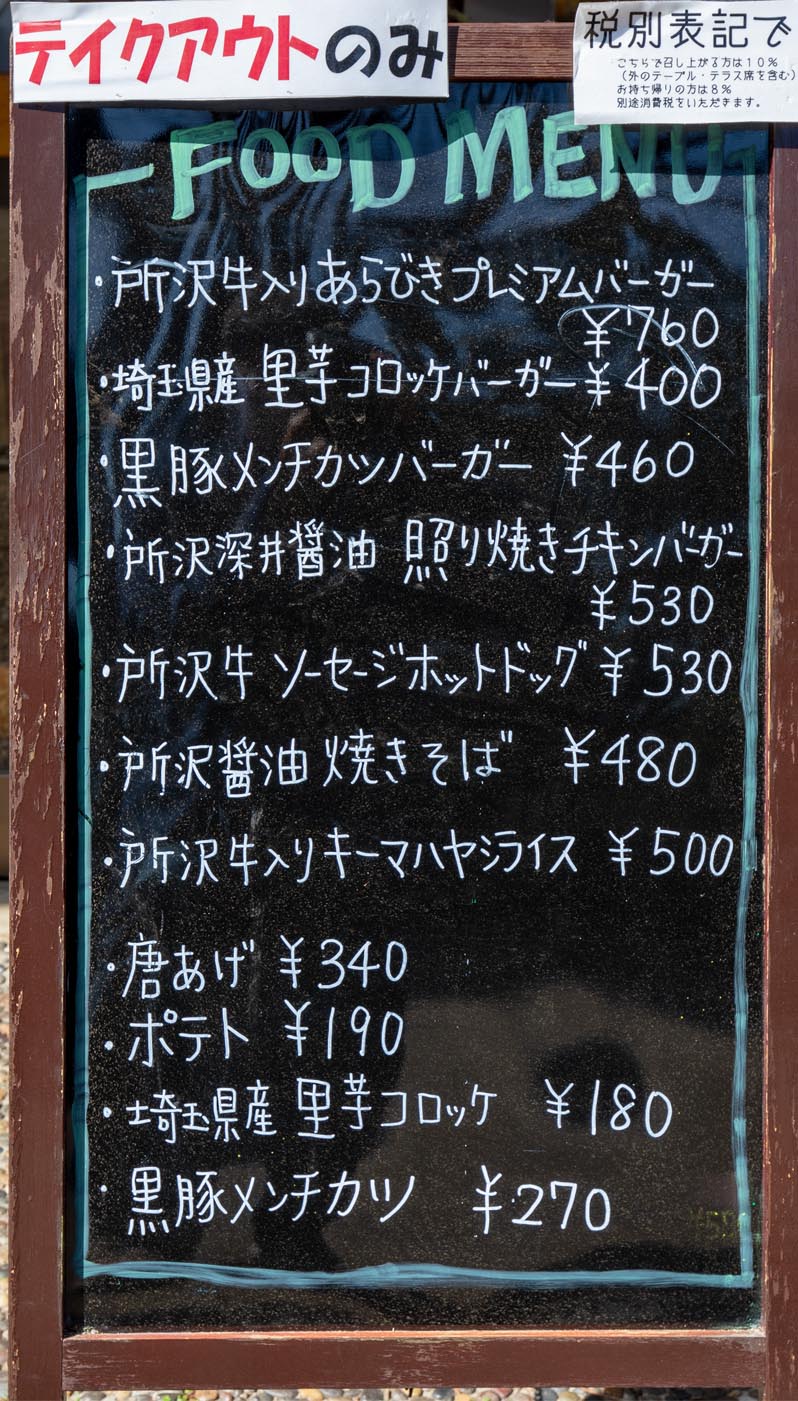 テイクアウトのみ
税別表記で
こちらで召し上がる方は10%
(外のテーブル・テラス席を含む)
お持ち帰りの方は8%
別途消費税をいただきます。
FOOD MENU
・所沢牛入りあらびきプレミアムバーガー
¥760
・埼玉県産 里芋コロッケバーガー ¥400
・黒豚メンチカツバーガー ¥460
・所沢深井醤油 照り焼きチキンバーガー
¥530
・所沢牛 ソーセージホットドッグ ¥530
・所沢醤油 焼きそば ¥480
・所沢牛入りキーマハヤシライス ¥500
・唐あげ ¥340
・ポテト ¥190
・埼玉県産 里芋コロッケ ¥180
・黒豚メンチカツ ¥270